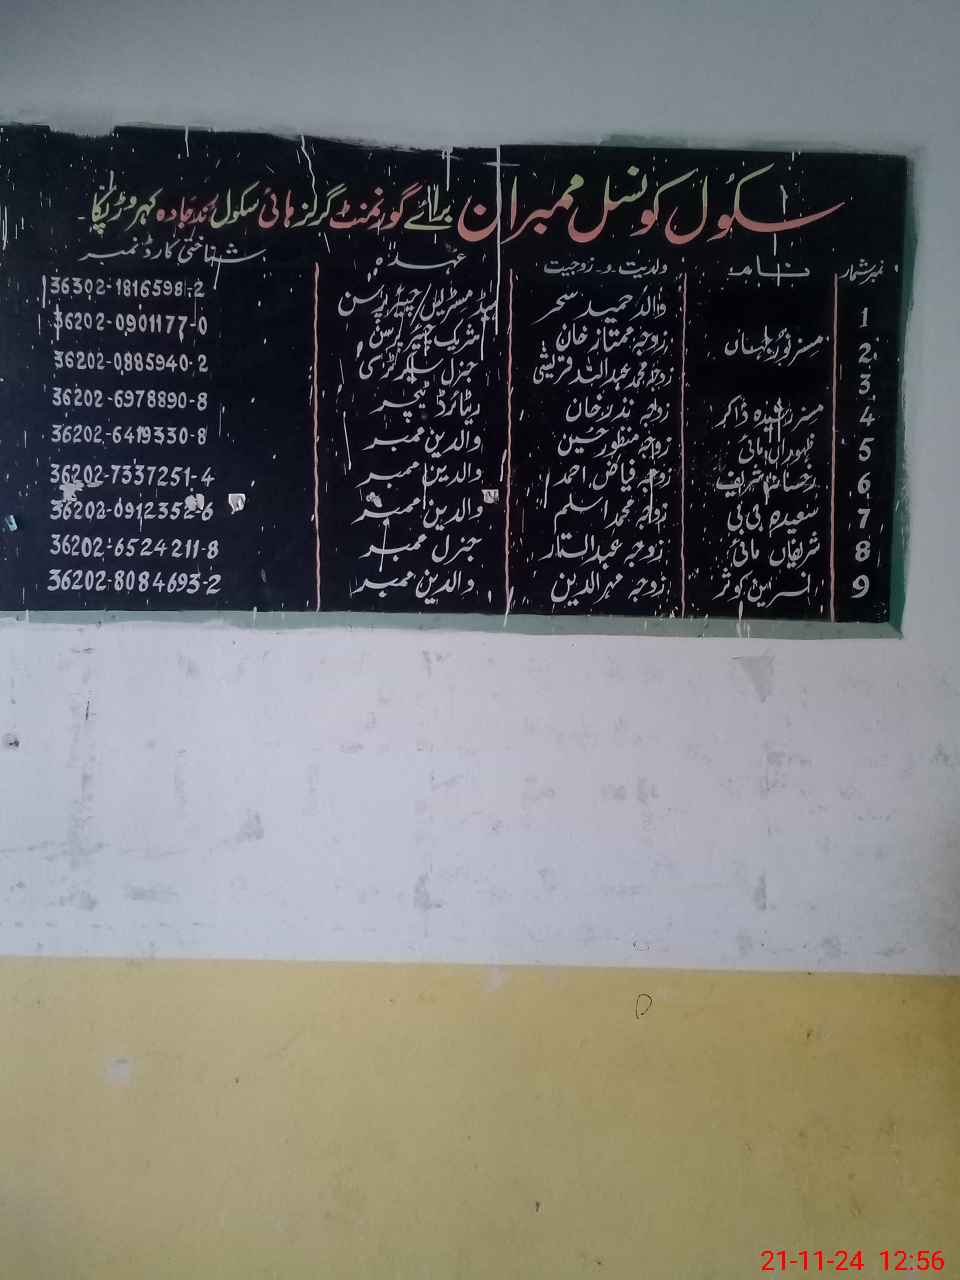 سکول کونسل ممبران برائے گورنمنٹ گرلز ہائی سکول کہروڑ پکا
نمبر شمار نام ولدیت و زوجیت عہدہ شناختی کارڈ نمبر
1 والد حمید سحر ہیڈ مسٹریس / چیئرپرسن 36302-1816598-2
2 مسز زوجہ ممتاز خان شریک چیئرپرسن 36202-0901177-0
3 زوجہ محمد عبداللہ قریشی جنرل سیکرٹری 36202-0885940-2
4 مسز رشیدہ ذاکر زوجہ نذر خان ریٹائرڈ ٹیچر 36202-6978890-8
5 ظہوراں مائی زوجہ منظور حسین والدین ممبر 36202-6419330-8
6 رخسانہ شریف زوجہ فیاض احمد والدین ممبر 36202-7337251-4
7 سعیدہ بی بی زوجہ محمد اسلم والدین ممبر 36202-0912352-6
8 شریفاں مائی زوجہ عبدالستار جنرل ممبر 36202-6524211-8
9 نسرین کوثر زوجہ مہرالدین والدین ممبر 36202-8084693-2
21-11-24 12:56